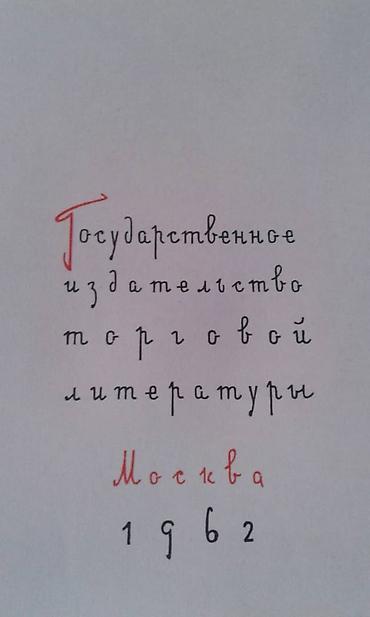 Государственное
издательство
торговой
литературы
Москва
1962